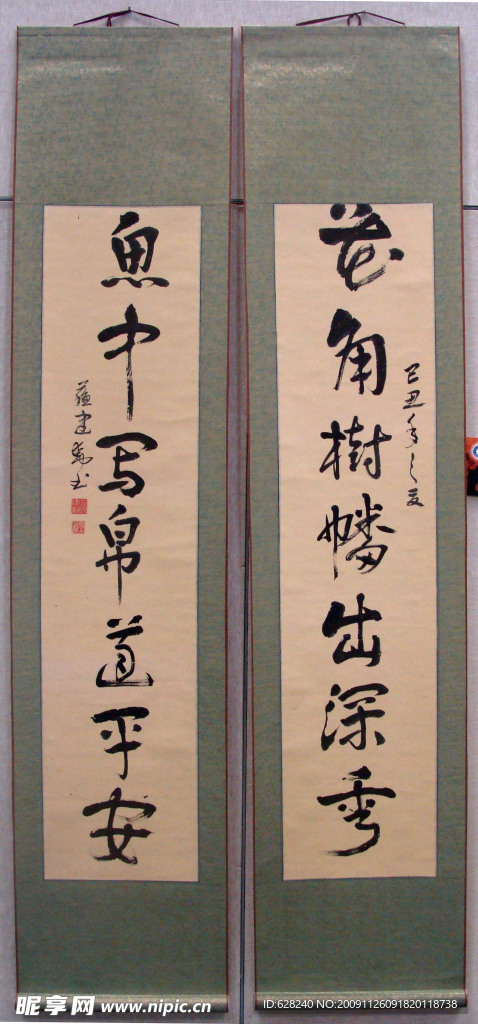 花角树幡出深秀
己丑年之夏
魚中写帛道平安
苏建勇书
昵享网 www.nipic.cn
ID:628240 NO:20091126091820118738